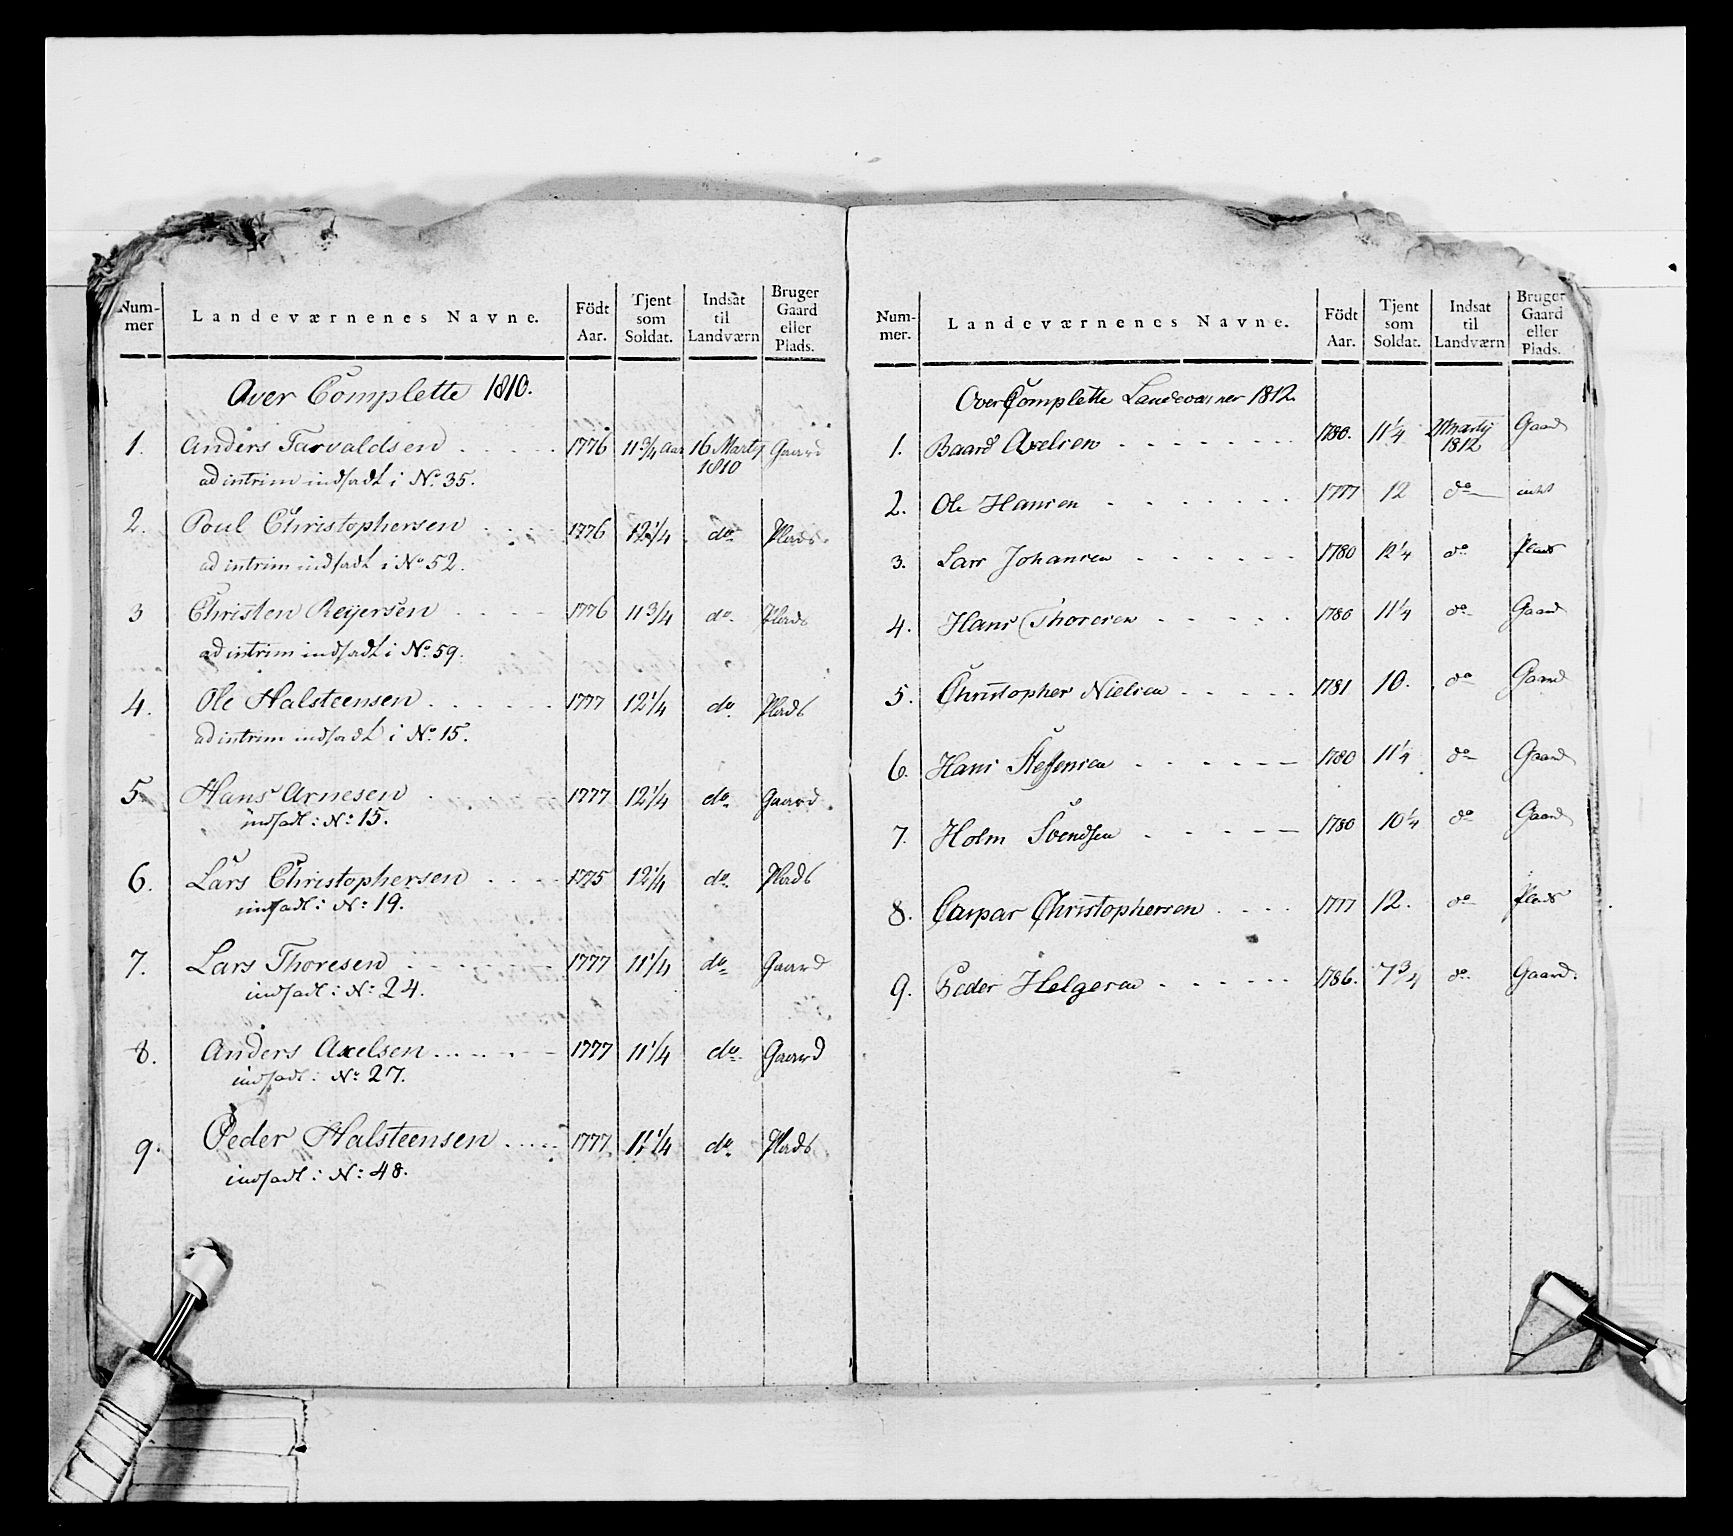 Num-mer Landeværnenes Navne. Födt Aar. Tjent som Soldat. Indsat til Landværn Bruger Gaard eller Plads.
Over Complette 1810.
1. Anders Tarvaldsen . . . . . 1776 11 3/4 Aar 16 Martj 1810 Gaard
ad intrim indsadt i No. 35.
2. Poul Christophersen . . . . 1776 12 1/4 do. Plads.
ad intrim indsadt i No 52.
3 Christen Reijersen . . . . 1776 11 3/4 do. Plads
ad intrim indsadt i No. 59.
4. Ole Halsteensen . . . . . . 1777 12 1/4 do. Plads
ad intrim indsadt i No. 15.
5. Hans Arnesen . 1777 12 1/4 do. Gaard.
indsadt: No: 15.
6. Lars Christophersen . . . . 1775 12 1/4 do. Plads
indsadt: No: 19.
7. Lars Thoresen . . . . . . 1777 11 1/4 do. Gaard
indsadt: No: 24.
8. Anders Axelsen . . . . . . 1777 11 1/4 do. Gaard
indsadt: No: 27.
9. Peder Halsteensen . . . . . 1777 11 1/4 do. Plads
indsadt: No: 48.
Num-mer. Landeværnenes Navne. Födt Aar. Tjent som Soldat. Indsat til Landværn Bruger Gaard eller Plads.
Over Complette Landeværner 1812.
1. Baard Axelsen . . . . . . . 1780. 11 1/4 Martij 1812 Gaard
2. Ole Hansen . . . . . . . 1777 12 do intet
3. Lars Johansen . . . . . . 1780 12 1/4 do Plads
4. Hans Thoresen . . . . . 1780 11 1/4 do Gaard
5. Christopher Nielsen . . . . . 1781 10. do Gaard
6. Hans Steffensen . . . . . . 1780 11 1/4 do Gaard
7. Holm Svendsen . . . . . 1780 10 1/4 do Gaard
8. Caspar Christophersen . . . . 1777 12. do Plads
9. Peder Helgesen . . . . . . 1786. 7 3/4 do. Gaard.